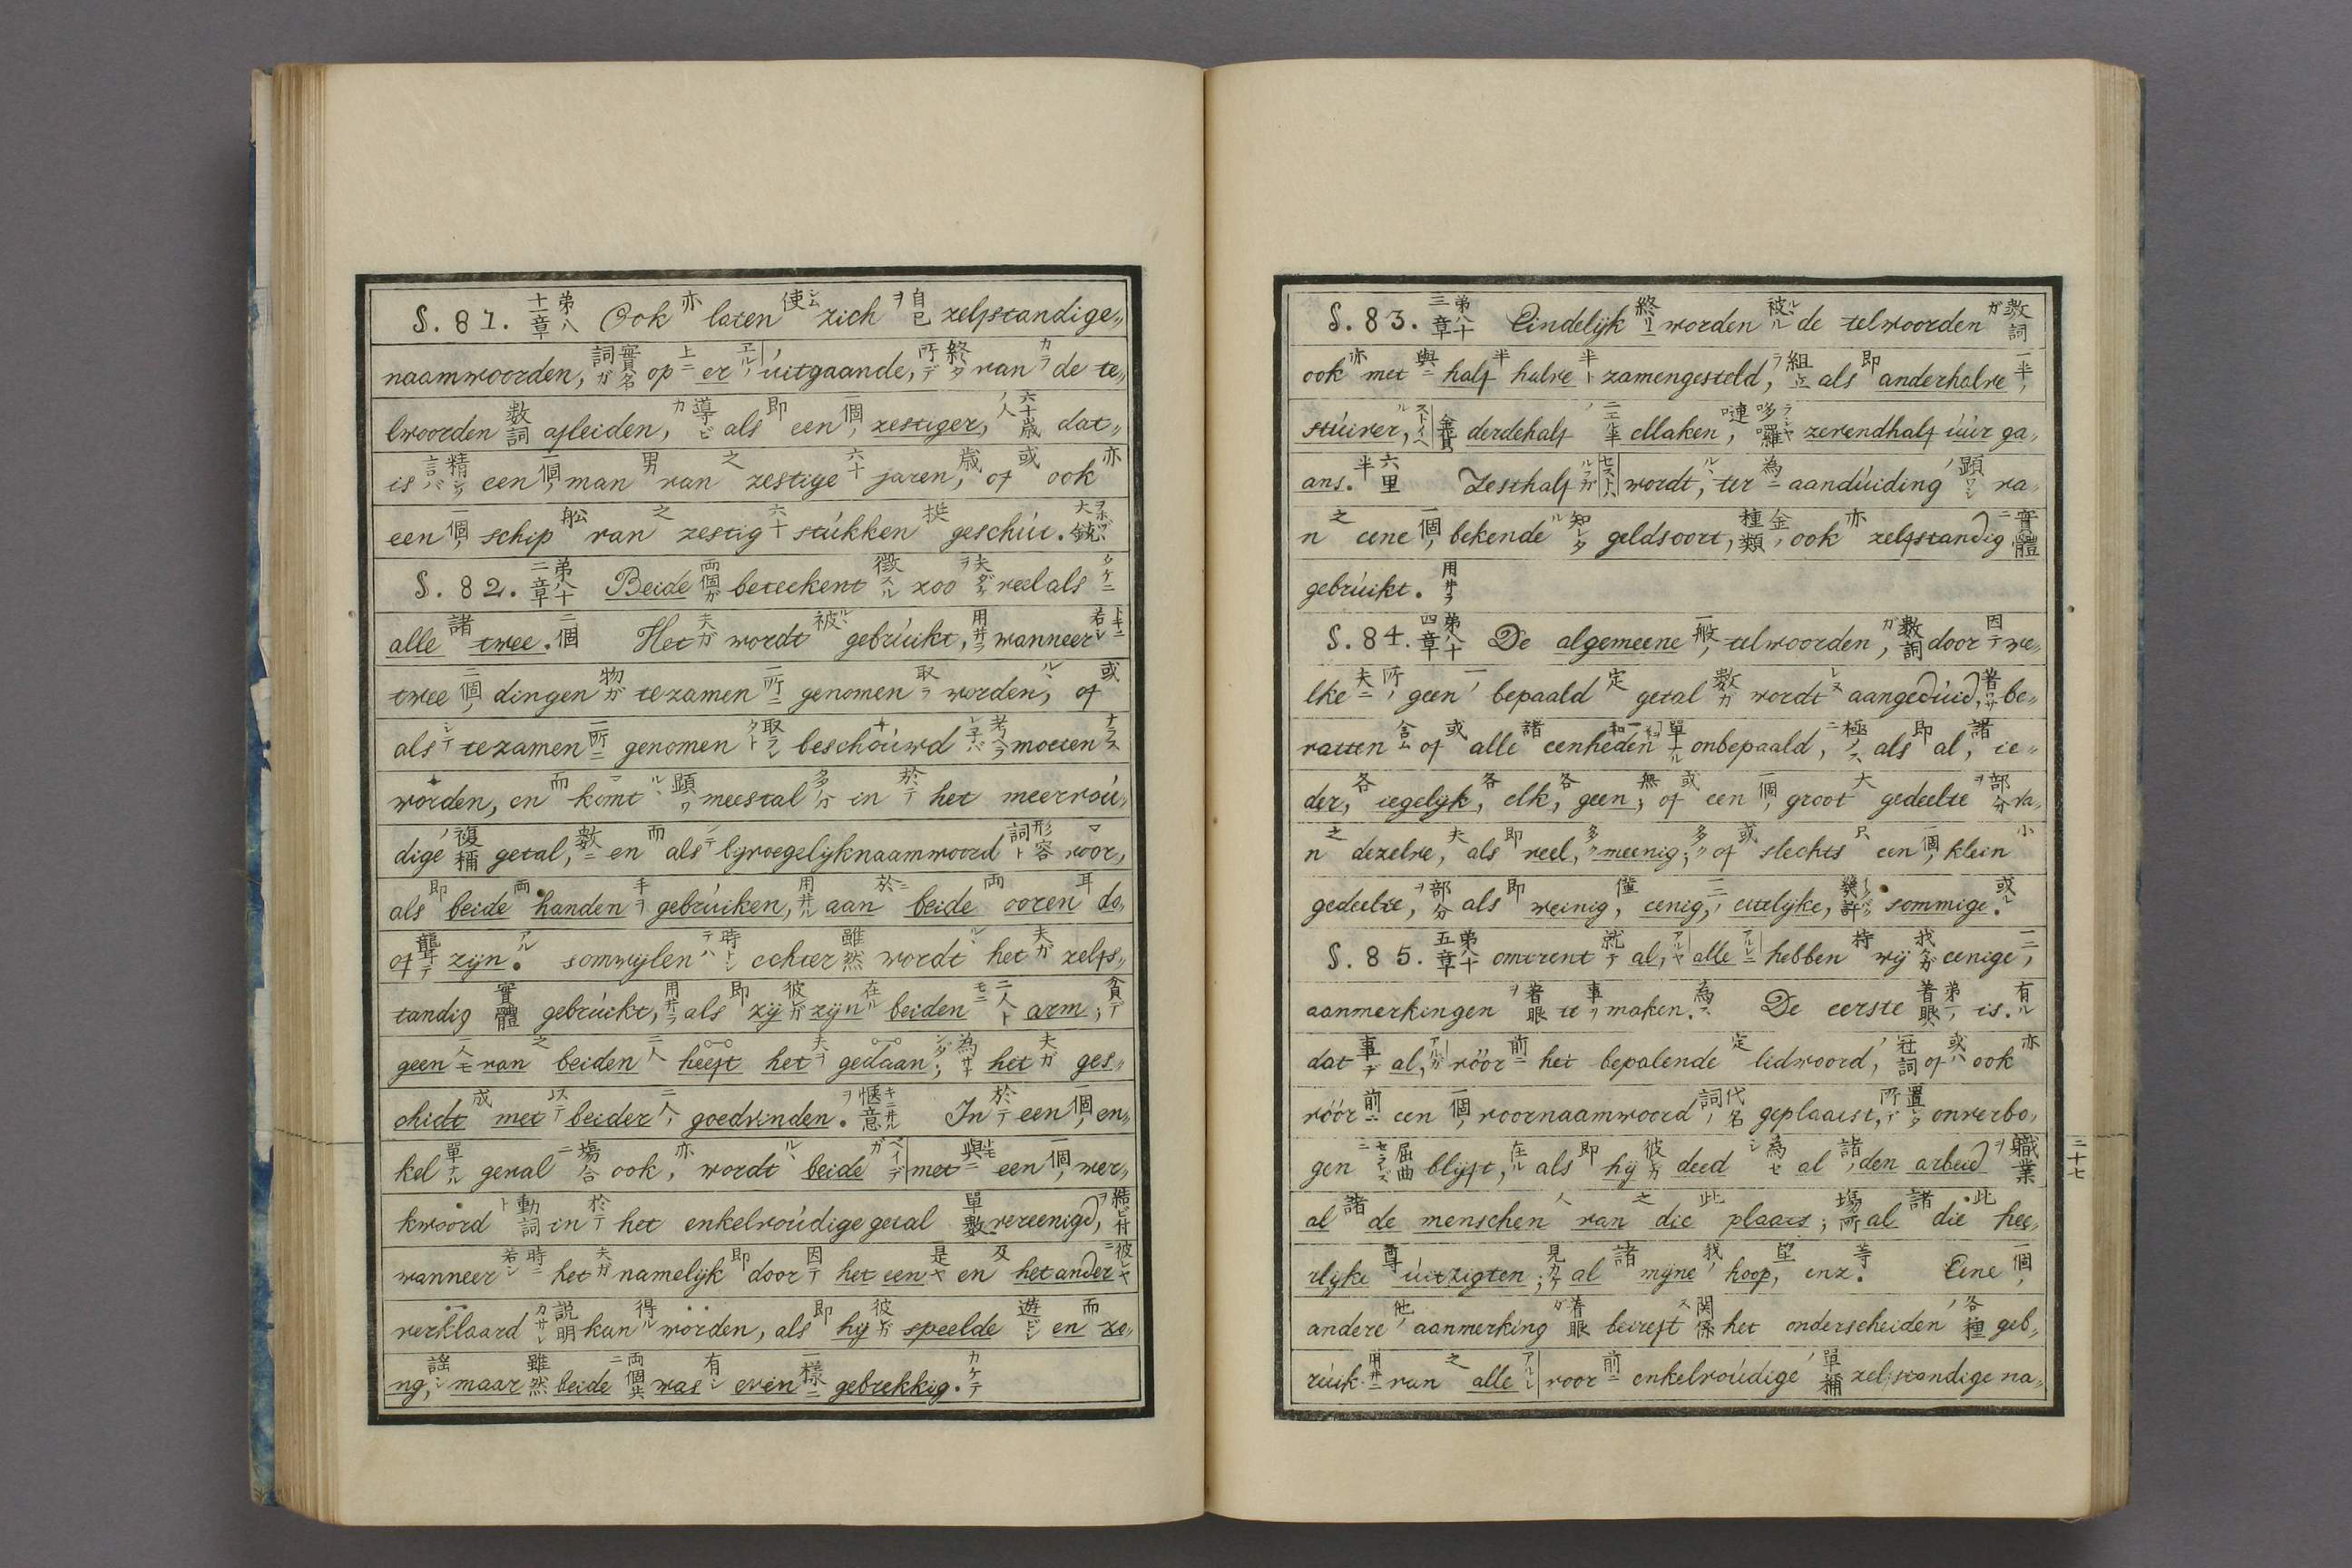 §. 81. 第八十一章 Ook 亦 laten 使シム zich ヲ 自己 zelfstandige„
naamwoorden, 實名詞ガ op 上ニ er エル, uitgaande, 終タ所デ van カラ de te„
lwoorden 数詞 afleiden, 導ビカ als 即 een 一個, zestiger, 六十歳ノ人 dat„
is 精シク言バ een 一個, man 男 van 之 zestige 六十 jaren, 歳 of 或 ook 亦
een 一個, schip 舩 van 之 zestig 六十 stukken 挺 geschut. 大銃
§. 82. 第八十二章 Beide 両個ガ beteekent 徴スル zoo ヲ夫ダケ veel als タケニ
alle 諸 twee. 二個 Het 夫ガ wordt 被ル gebruikt, 用井ラ wanneer 若シトキニ
twee 二個, dingen 物ガ tezamen 一所ニ genomen 取ラ worden, ル of 或
als シテ tezamen 一所ニ genomen 取ラレタト beschouwd 考ヘラレ子バ moeten ナラヌ
worden, en 而 komt ル meestal 顕ワ 多分 in 於テ het meervou„
dige 複稱 getal, 数ニ en 而 als テ bijvoegelijknaamwoord 形容詞ト voor,
als 即 beide 両 handen 手ヲ gebruiken, 用井ル aan 於ニ beide 両 ooren 耳 do„
of 聾デ zijn. アル somwijlen 時トシテハ echter 雖然 wordt ル het 夫ガ zelfs„
tandig 實體 gebruikt, 用井ラ als 即 zij 彼レガ zijn 在ル beiden 二人トモニ arm; 貧デ
geen 一人モ van 之 beiden 二人 heeft het 夫ヲ gedaan; 為サナンダ het 夫ガ ges„
chidt 成 met 以テ beider 二人 goedvinden. 愜意 In 於テ een 一個, en„
kel 單ナル geval 塲合ニ ook, 亦 wordt ル beide ベイデガ met 與ニ een 一個, wer„
kwoord 動詞ト in 於テ het enkelvoudige getal 單數 vereenigd, ヲ結ビ付
wanneer 若シ時ニ het 夫ガ namelijk 即 door 因テ het een 是ヤ en 及 het ander 彼レヤ
verklaard 説明カサレ kan 得ル worden, als 即 hij 彼レガ speelde 遊ビシ en 而 zo„
ng, 謡シ maar 雖然 beide 両個共ニ was 有シ even 一様ニ gebrekkig. カケテ
§. 83. 第八十三章 Eindelijk 終リニ worden 被ル de telwoorden 数詞ガ
ook 亦 met 與ニ half 半 halve 半ト zamengesteld, 組立ラ als 即 anderhalve 一半,
stuiver, ストイヘル 金貨 derdehalf 二エル半ノ ellaken, 哆囉嗹 zevendhalf uur ga„
ans. 六里半 Zesthalf セストハルフガ wordt, ル ter 為ニ aanduiding 顕ワシノ va„
n 之 eene 一個, bekende 知レタル geldsoort, 金種類, ook 亦 zelfstandig 實體ニ
gebruikt. 用井ラ
§. 84. 第八十四章 De algemeene 一般, telwoorden, 数詞ガ door 因テ we„
lke 夫ニ所, geen 一, bepaald 定 getal 数ガ wordt レヌ aangeduid, 著ワサ be„
vatten 含ム of 或 alle 諸 eenheden 一和 單ナル onbepaald, 極ナニ als 即 al, 諸 ie„
der, 各 iegelijk, 各 elk, 各 geen, 無 of 或 een 一個, groot 大 gedeelte 部分ヲ va„
n 之 dezelve, 夫 als 即 veel, 多 meenig; 多 of 或 slechts 只 een 一個, klein 小
gedeelte, 部分ヲ als 即 weinig, 僅 eenig, 一二 ettelijke, 幾許 sommige. 或ル
§. 85. 第八十五章 omtrent 就テ al, アルヤ alle アルレニ hebben 持 wij 我々ガ eenige, 一二
aanmerkingen 着眼ヲ te 事ヲ maken. 為ス De eerste 第一, 着眼 is. 有ル
dat 事デ al, アルガ vóór 前ニ het bepalende 定 lidwoord, 冠詞ノ of 或ハ ook 亦
vóór 前ニ een 一個, voornaamwoord 代名詞, geplaatst, 置レタ所デ onverbo„
gen 屈曲セラレズニ blijft, 在ル als 即 hij 彼レガ deed 為セシ al 諸, den arbeid 職業ヲ
al 諸 de menschen 人 van 之 die 此 plaats; 塲所 al 諸 die 此 hee„
rlijke 尊 uitzigten; 見カケ al 諸 mijne 我, hoop, 望 enz. 等 Eene 一個,
andere 他, aanmerking 着眼ガ betreft 関係ス het onderscheiden 各種ノ geb„
ruik 用井ニ van 之 alle アルレ voor 前ニ enkelvoudige 單稱ノ zelfstandige na„
二十七